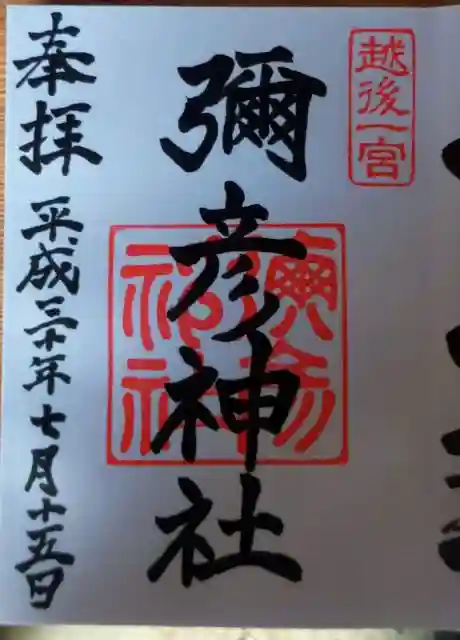 越後一宮
彌彦神社
奉拝
平成三十年七月十五日